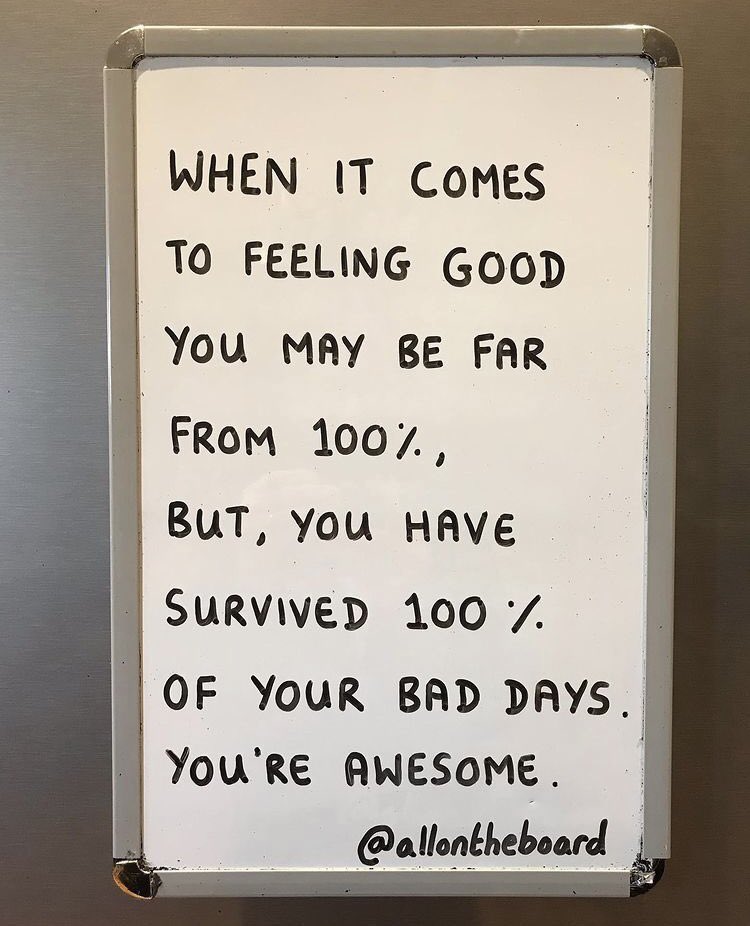 WHEN IT COMES
TO FEELING GOOD
YOU MAY BE FAR
FROM 100%,
BUT, YOU HAVE
SURVIVED 100%
OF YOUR BAD DAYS.
YOU'RE AWESOME.
@allontheboard